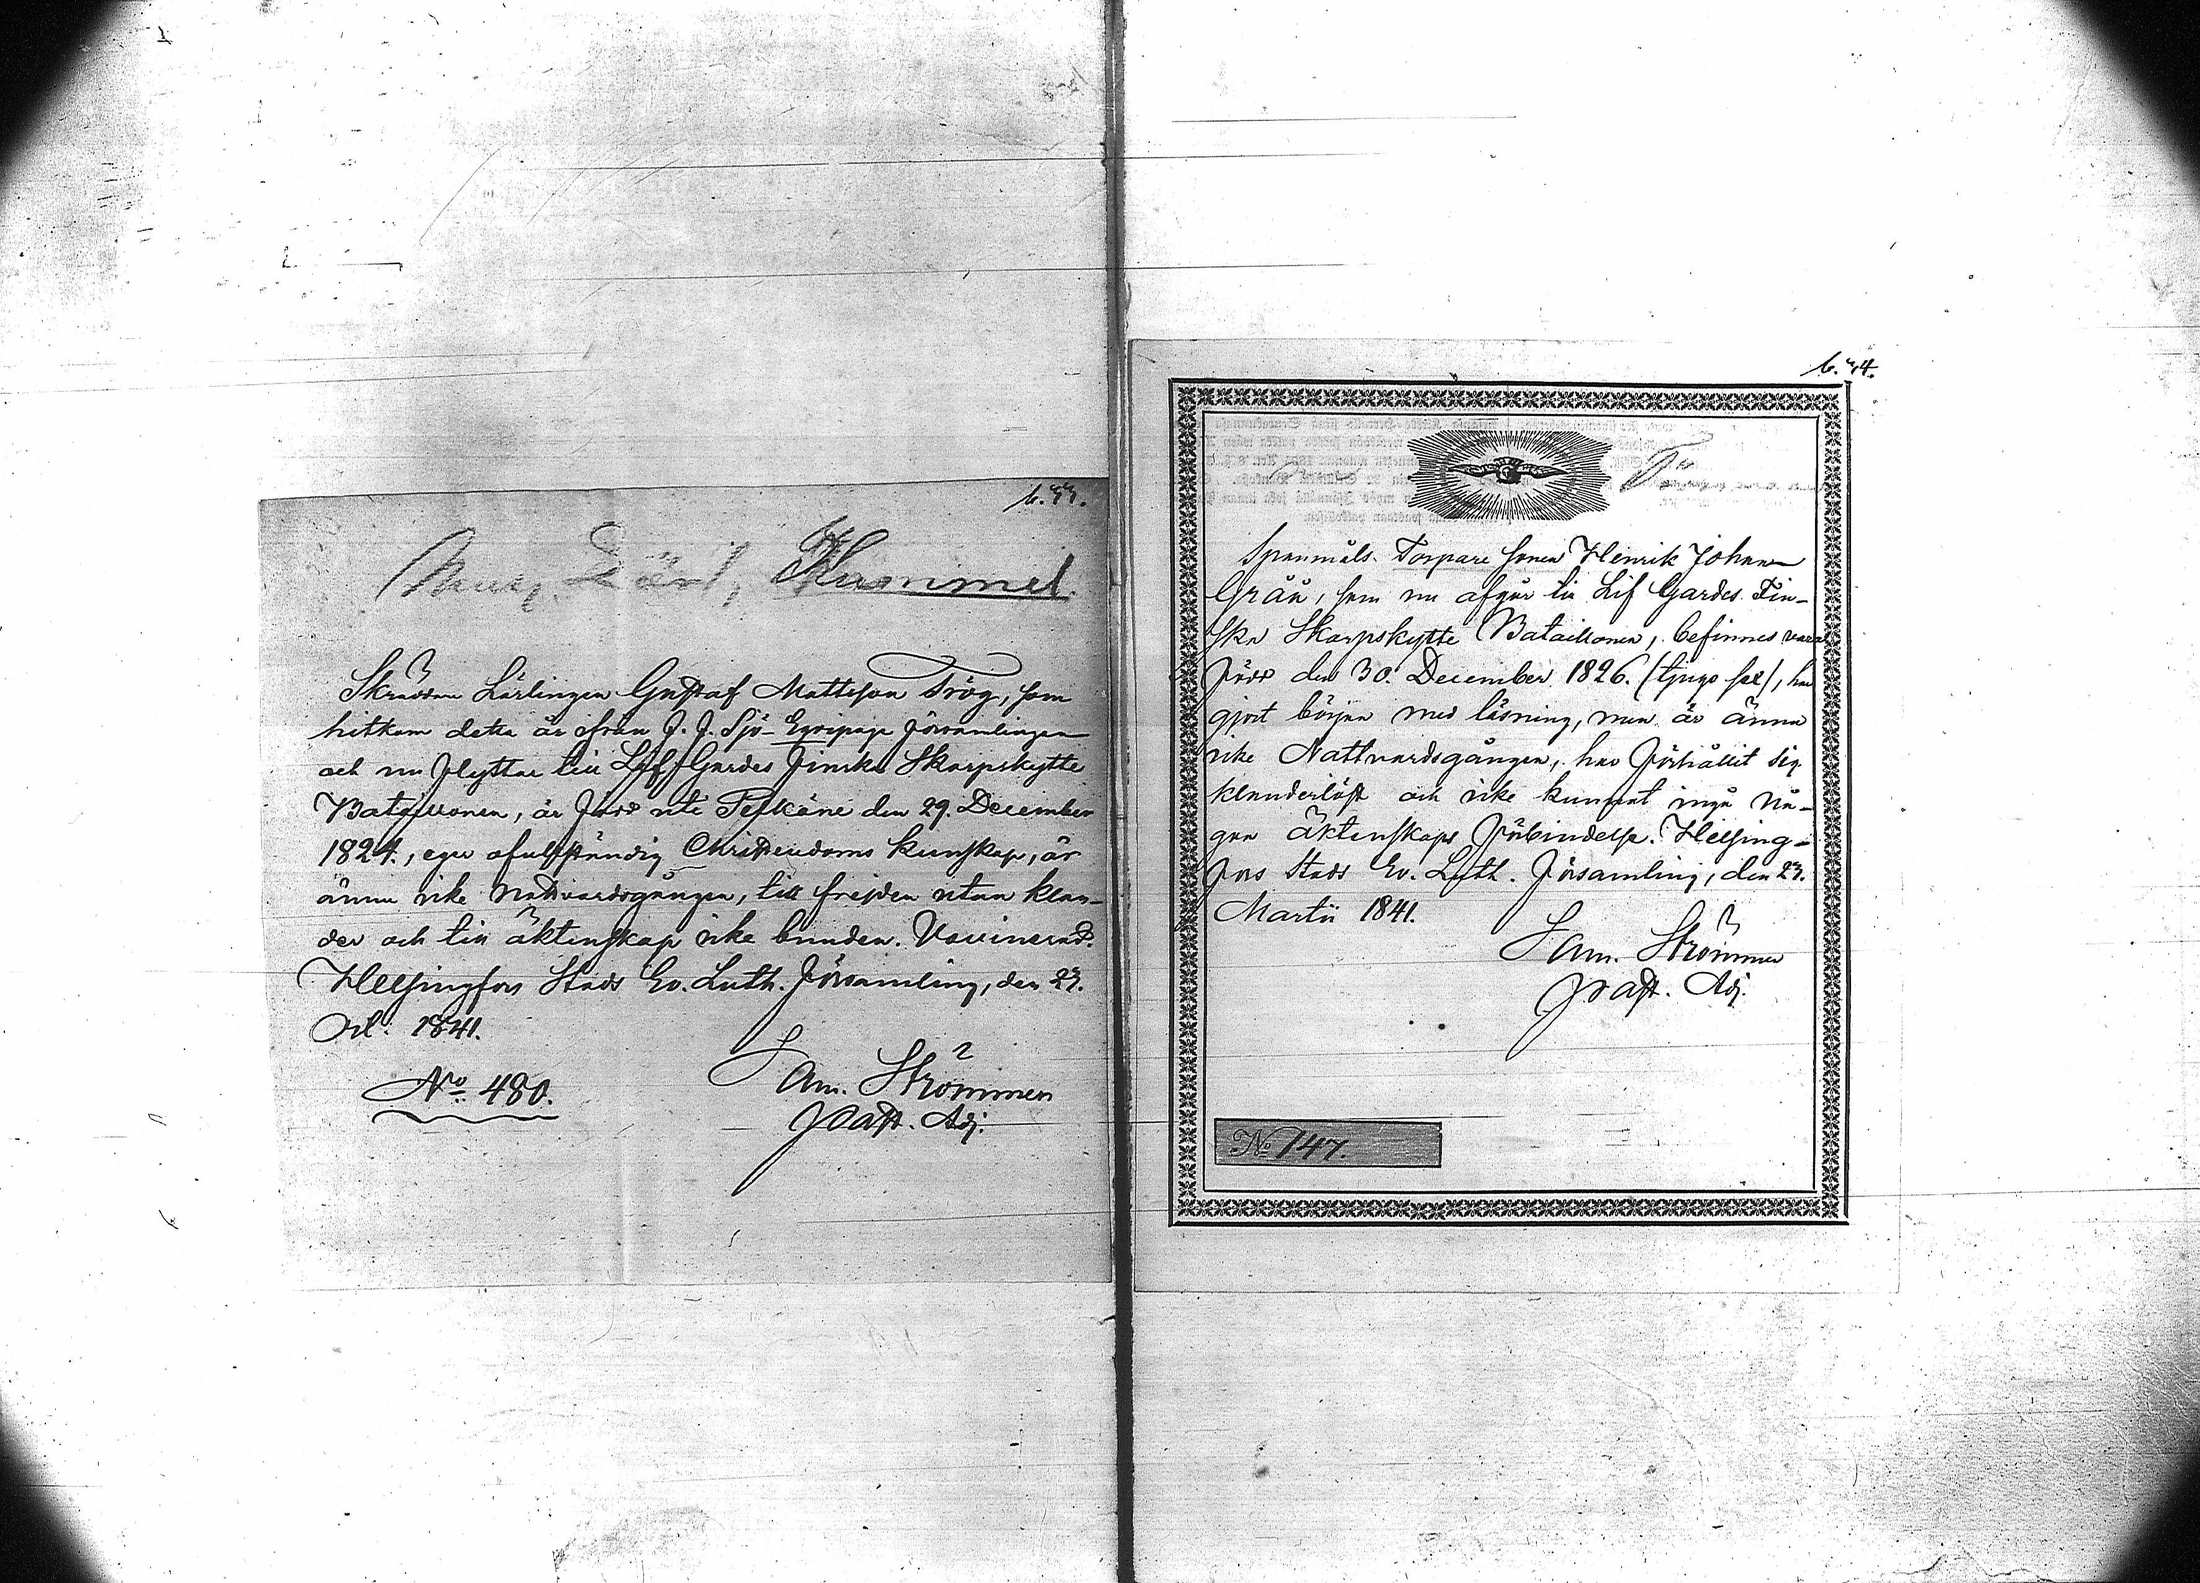 b. 73.
Hummel.
Skräddare Lärlingen Gustaf Mattsson Trög, som
hitkom detta år ifrån F. F. Sjö-Equipage Församlingen
och nu flyttar till Lif Gardes Finska Skarpskytte
Bataillonen, är född uti Pelkäne den 29. December
1824., eger ofullständig Christendoms kunskap, är
ännu icke Nattvardsgången, till frejden utan klan-
der och till äktenskap icke bunden.
Helsingfors Stads Ev. Luth. Församling, den 23.
Oct. 1841.
Sam. Strömmer
Past. Adj.
No. 480.
b. 74.
Spanmåls Torpare sonen Henrik Johan
Gråå, som nu afgår till Lif Gardes Fin-
ska Skarpskytte Bataillonen, befinnes vara
född den 30. December 1826. (tjugo sex), har
gjort början med läsning, men är ännu
icke Nattvardsgången, har förhållit sig
klanderlöst och icke kunnat ingå nå-
gon äktenskaps förbindelse. Helsing-
fors Stads Ev. Luth. Församling, den 23.
Martii 1841.
Sam. Strömmer
Past. Adj.
No 147.